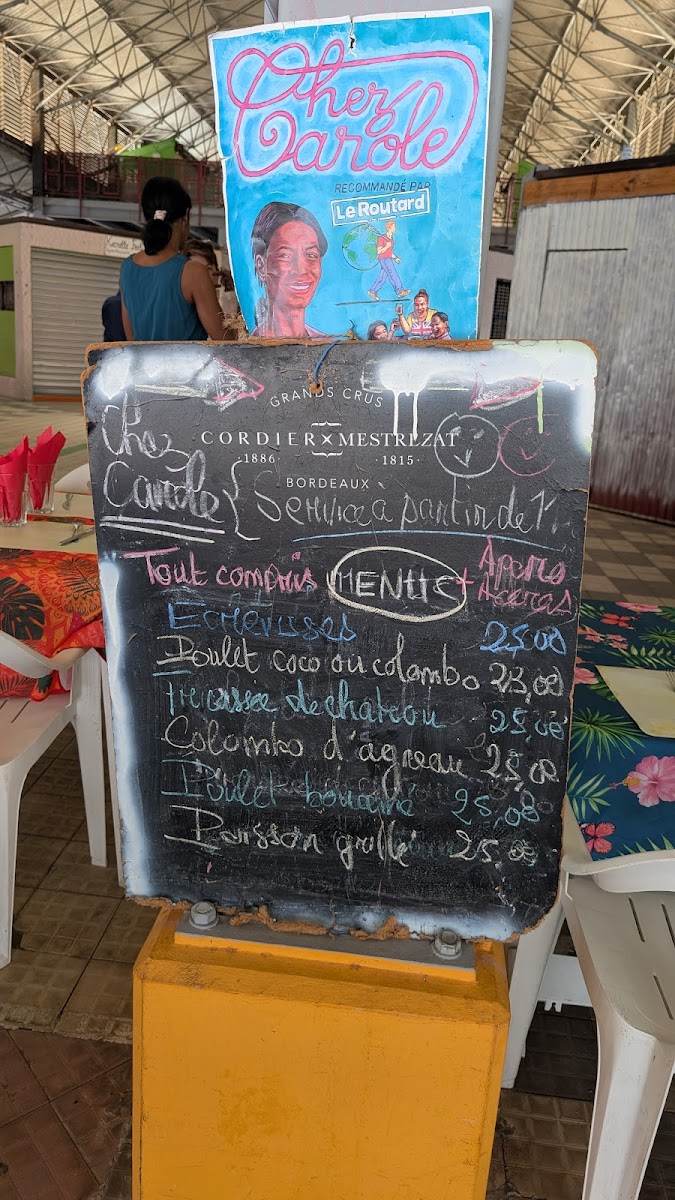 Chez
Carole
RECOMMANDÉ PAR
Le Routard
GRANDS CRUS
CORDIER MESTREZAT
·1886· ·1815·
BORDEAUX
Chez
Carole
Service a partir de 11
Tout compris MENUS + Apero
Acras
Ecrevisses 25,00
Poulet coco ou colombo 23,00
Fricassée de chatrou 25,00
Colombo d'agneau 25,00
Poulet boucané 25,00
Poisson grillé 25,00